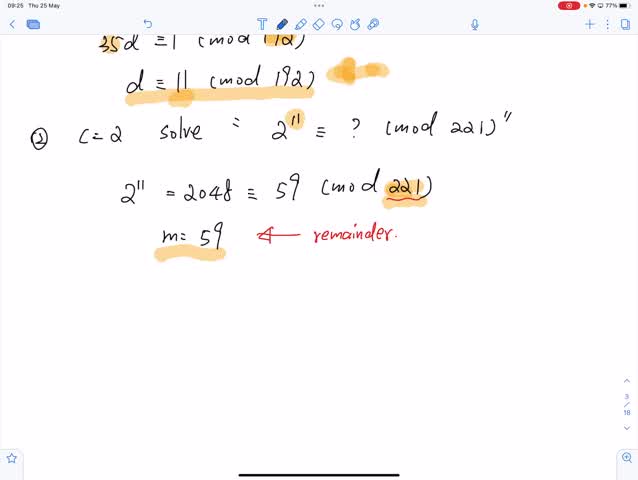 09:25 Thu 25 May
77%
35d ≡ 1 (mod 192)
d ≡ 11 (mod 192)
② C=2 solve = 2^11 ≡ ? (mod 221)"
2^11 = 2048 ≡ 59 (mod 221)
m= 59 ← remainder.
3
/
18